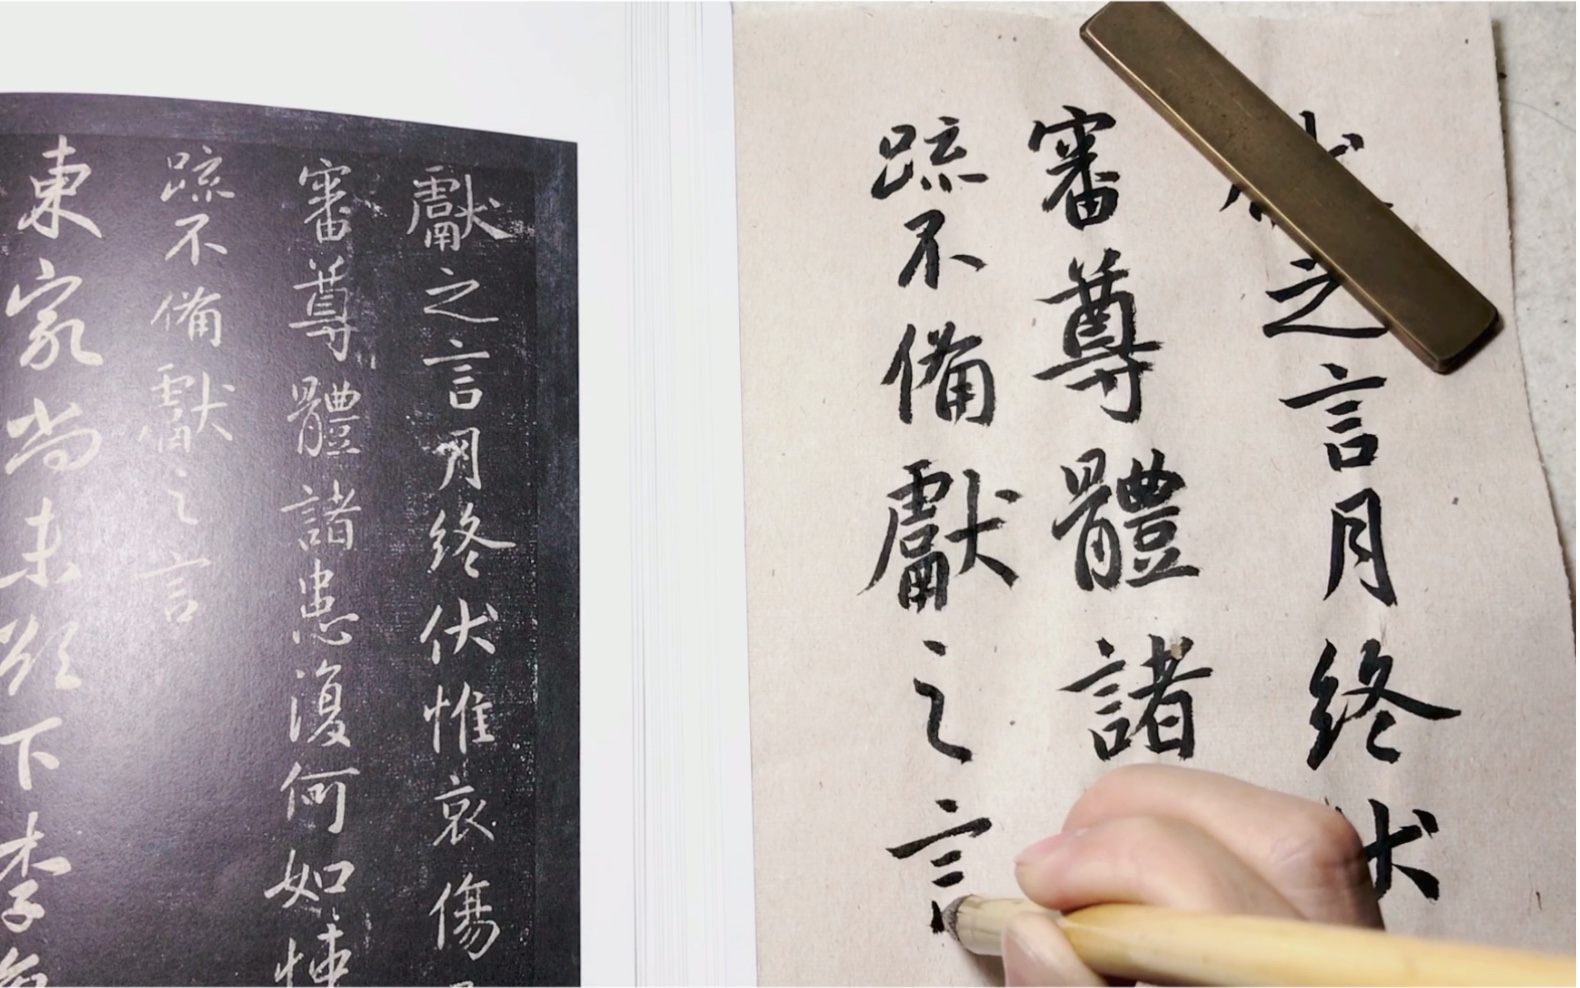 獻之言月終伏惟哀傷
審尊體諸患復何如悚
疏不備獻之言
東家尚未欲下李
之言月終伏
審尊體諸
疏不備獻之言